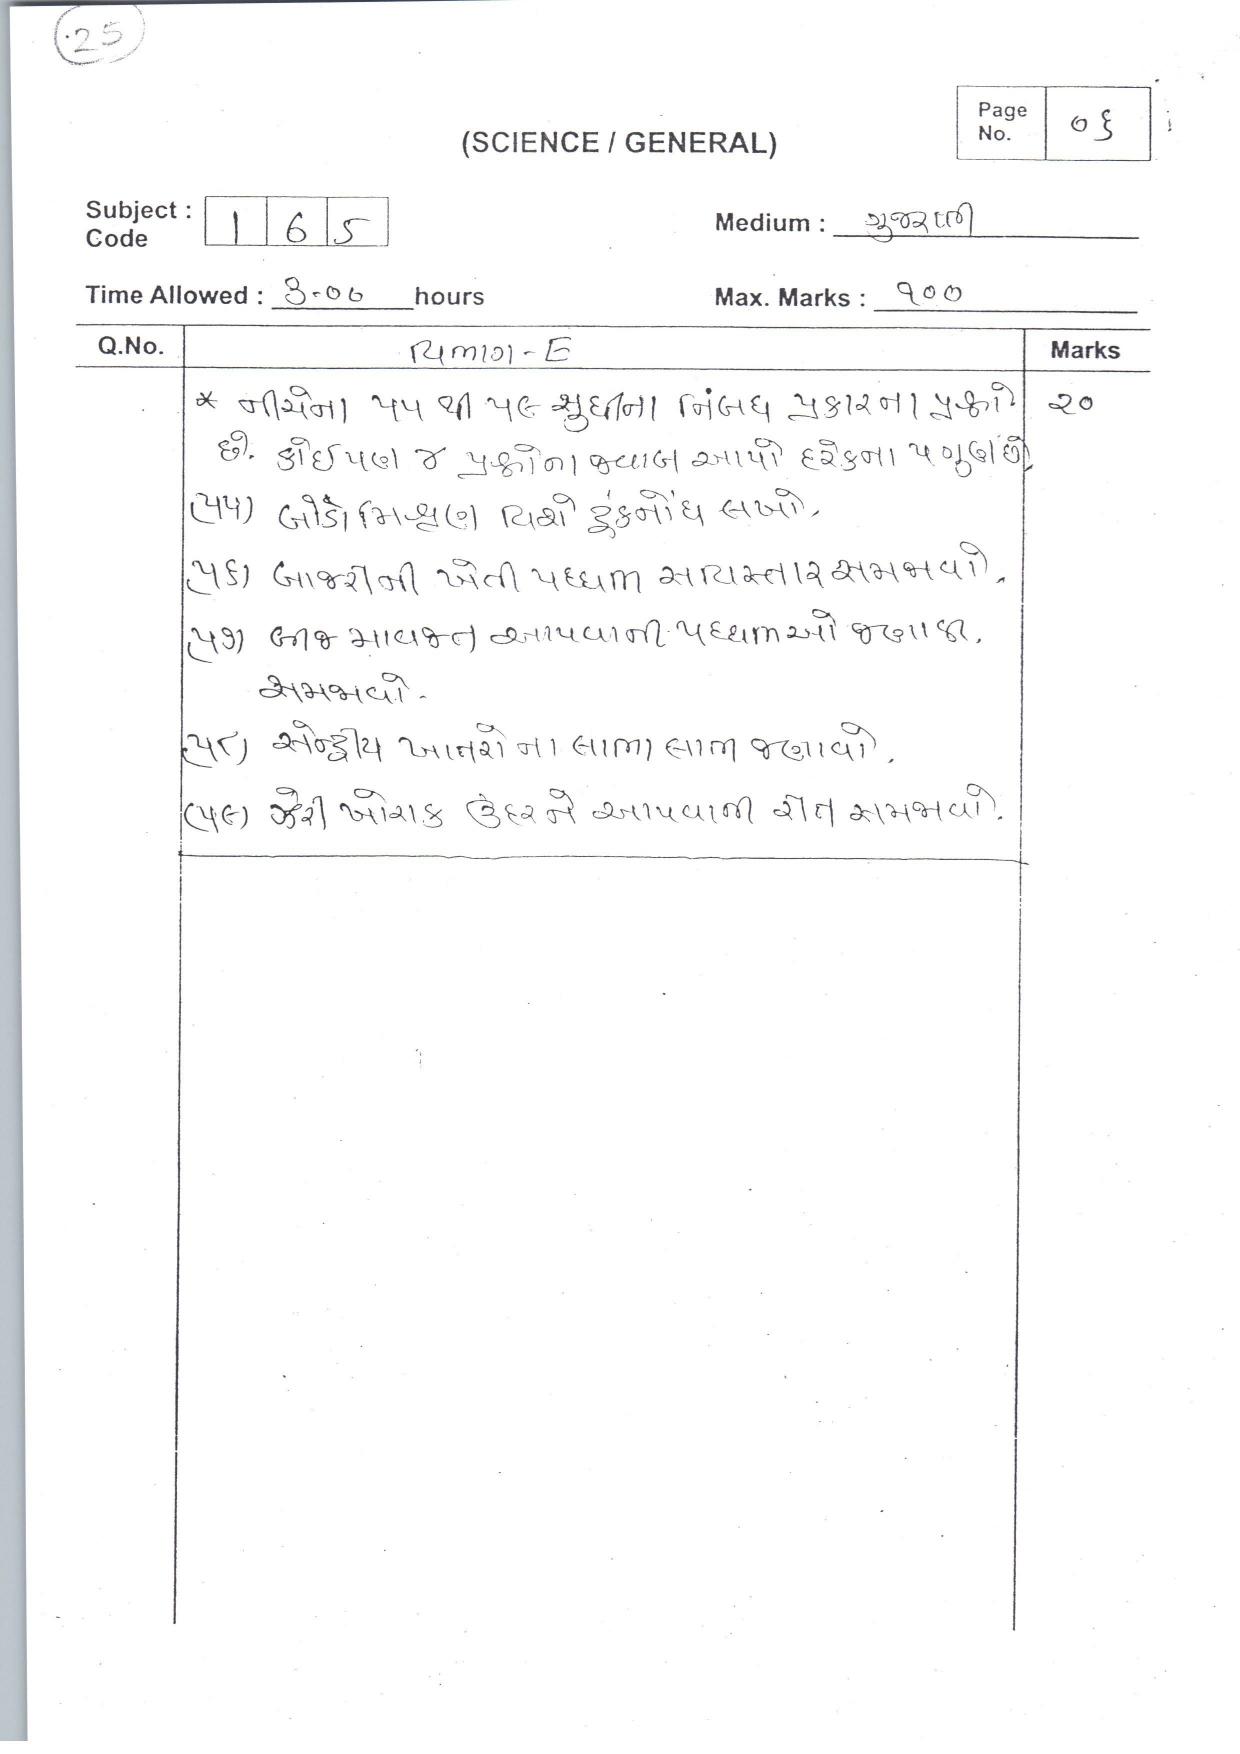 25
Page No. ૦૬
(SCIENCE / GENERAL)
Subject : Code 1 6 5
Medium : ગુજરાતી
Time Allowed : 3-00 hours
Max. Marks : ૧૦૦
Q.No. વિભાગ - E Marks
* નીચેના ૫૫ થી ૫૯ સુધીના નિબંધ પ્રકારના પ્રશ્નો ૨૦
છે. કોઈપણ ૪ પ્રશ્નોના જવાબ આપો દરેકના ૫ ગુણ છે
(૫૫) બોર્ડો મિશ્રણ વિશે ટુંકનોંધ લખો.
(૫૬) બાજરીની ખેતી પધ્ધતિ સવિસ્તાર સમજાવો.
(૫૭) બીજ માવજત આપવાની પધ્ધતિઓ જણાવી.
સમજાવો.
(૫૮) સેન્દ્રીય ખાતરોના લાભા લાભ જણાવો.
(૫૯) ઝેરી ખોરાક ઉંદરને આપવાની રીત સમજાવો.